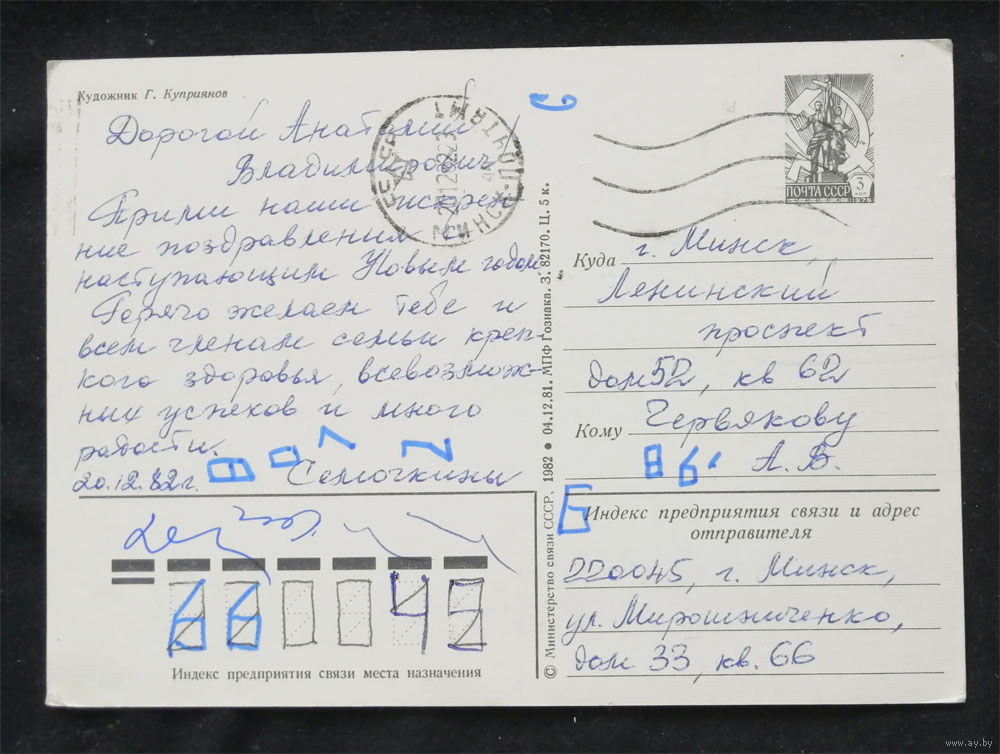 Художник Г. Куприянов
Дорогой Анатолий
Владимирович
Прими наши искрен-
ние поздравления
наступающим Новым годом
Горячо желаем тебе и
всем членам семьи креп-
кого здоровья, всевозмож-
ных успехов и много
радости.
20.12.82г. Семочкины
Индекс предприятия связи места назначения
© Министерство связи СССР, 1982 • 04.12.81. МПФ Гознака. З. 82170. Ц. 5 к.
СССР
МИНСК-ПОЧТАМТ
ПОЧТА СССР 3 коп
1976
Куда г. Минск,
Ленинский
проспект
дом 52, кв 62
Кому Червякову
А. В.
Индекс предприятия связи и адрес
отправителя
220045, г. Минск,
ул. Мирошниченко,
дом 33, кв. 66
www.ay.by